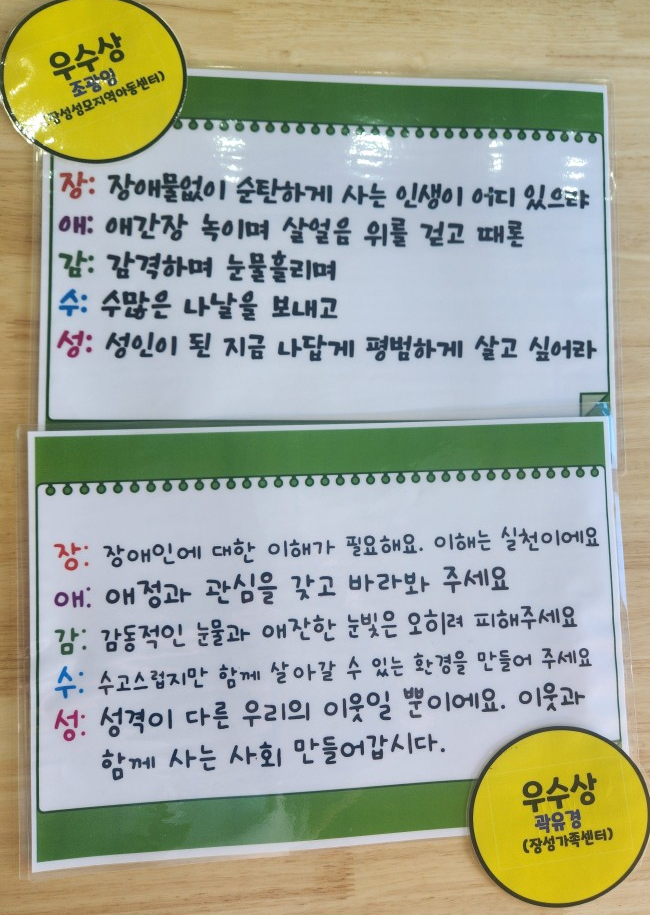 우수상
조광임
(장성성모지역아동센터)
장: 장애물없이 순탄하게 사는 인생이 어디 있으랴
애: 애간장 녹이며 살얼음 위를 걷고 때론
감: 감격하며 눈물흘리며
수: 수많은 나날을 보내고
성: 성인이 된 지금 나답게 평범하게 살고 싶어라
장: 장애인에 대한 이해가 필요해요. 이해는 실천이에요
애: 애정과 관심을 갖고 바라봐 주세요
감: 감동적인 눈물과 애잔한 눈빛은 오히려 피해주세요
수: 수고스럽지만 함께 살아갈 수 있는 환경을 만들어 주세요
성: 성격이 다른 우리의 이웃일 뿐이에요. 이웃과
함께 사는 사회 만들어갑시다.
우수상
곽유경
(장성가족센터)